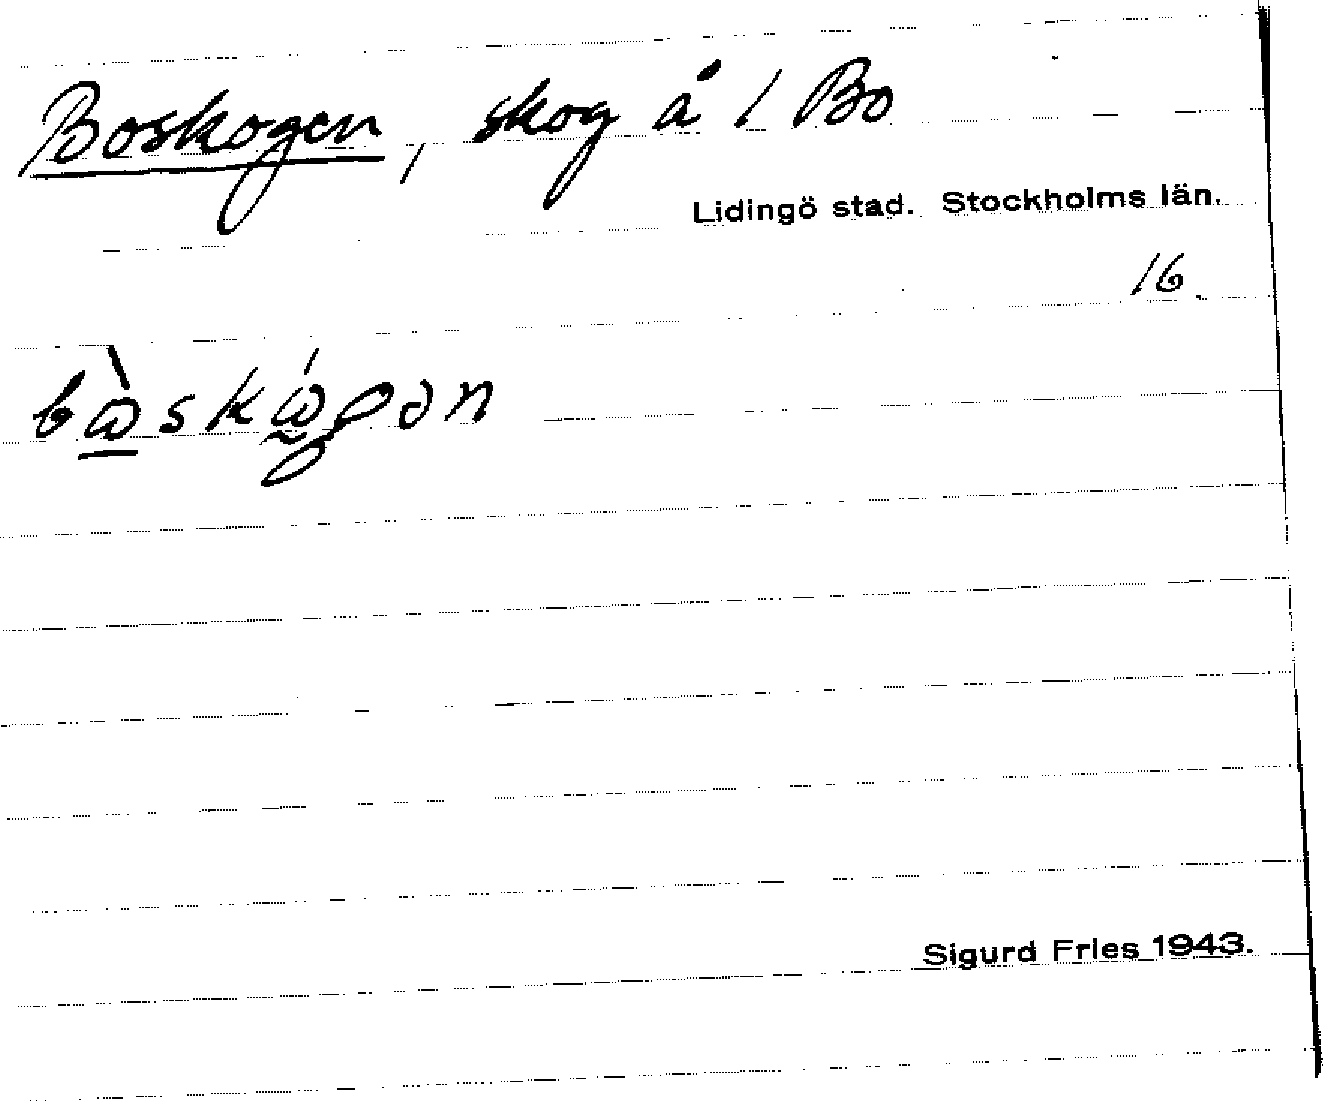 Boskogen, skog å 1 Bo
Lidingö stad. Stockholms län.
16
Sigurd Fries 1943.